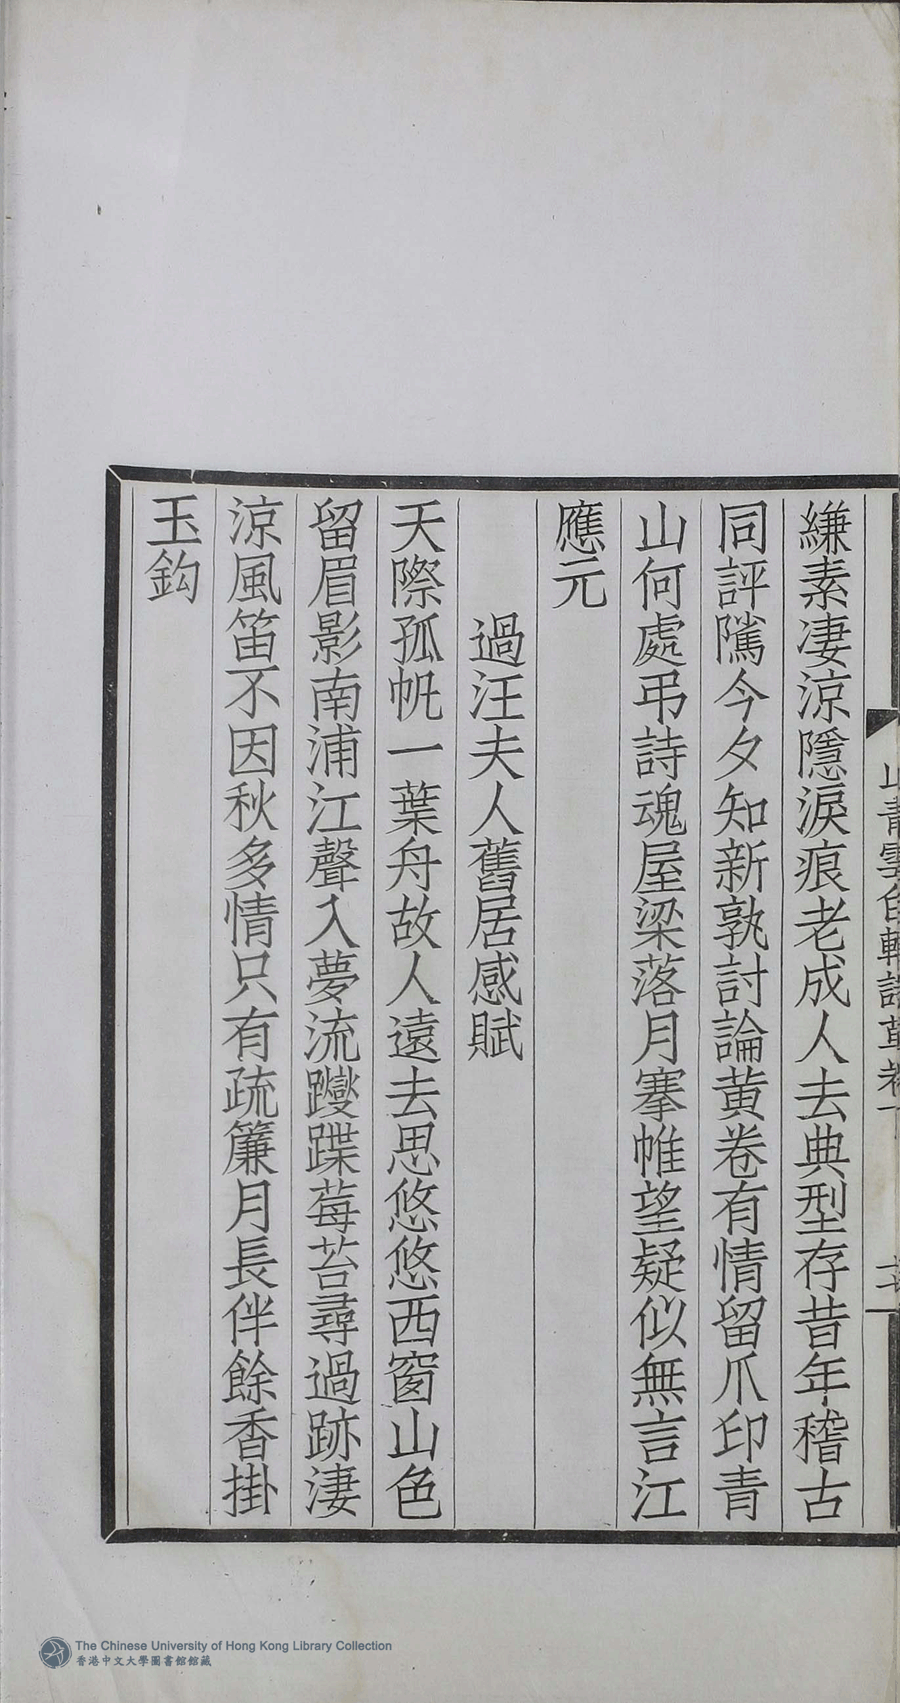 縑素凄涼隱淚痕老成人去典型存昔年稽古
同評隲今夕知新孰討論黄卷有情留爪印青
山何處弔詩魂屋梁落月搴帷望疑似無言江
應元
過汪夫人舊居感賦
天際孤帆一葉舟故人遠去思悠悠西窗山色
留眉影南浦江聲入夢流躞蹀莓苔尋過跡淒
涼風笛不因秋多情只有疏簾月長伴餘香掛
玉鈎
The Chinese University of Hong Kong Library Collection
香港中文大學圖書館館藏